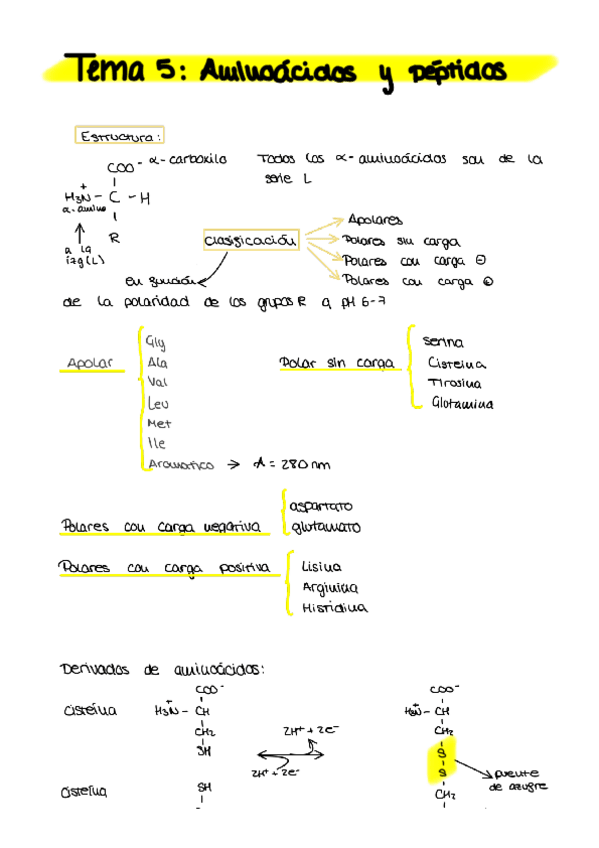 Tema 5: Aminoácidos y péptidos
Estructura:
COO- α-carboxilo
Todos los α-aminoácidos son de la serie L
H3N+ - C - H
α-amino
R
a la izq (L)
clasificación
Apolares
Polares sin carga
Polares con carga ⊖
Polares con carga ⊕
en función
de la polaridad de los grupos R a pH 6-7
Apolar
Gly
Ala
Val
Leu
Met
Ile
Aromático → A = 280 nm
Polar sin carga
serina
Cisteína
Tirosina
Glotamina
Polares con carga negativa
aspartato
glutamato
Polares con carga positiva
Lisina
Arginina
Histidina
Derivados de aminoácidos:
COO-
cisteína H3N+ - CH
CH2
SH
2H+ + 2e-
2H+ + 2e-
cisteína
SH
COO-
H3N+ - CH
CH2
S
S
CH2
puente de azufre